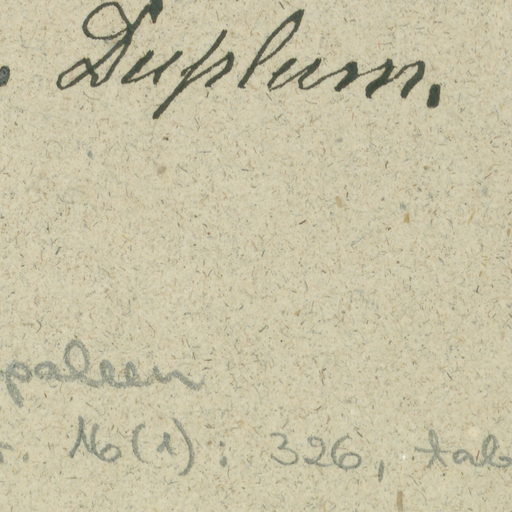 Duplum.
paleen
16(1): 326, tab